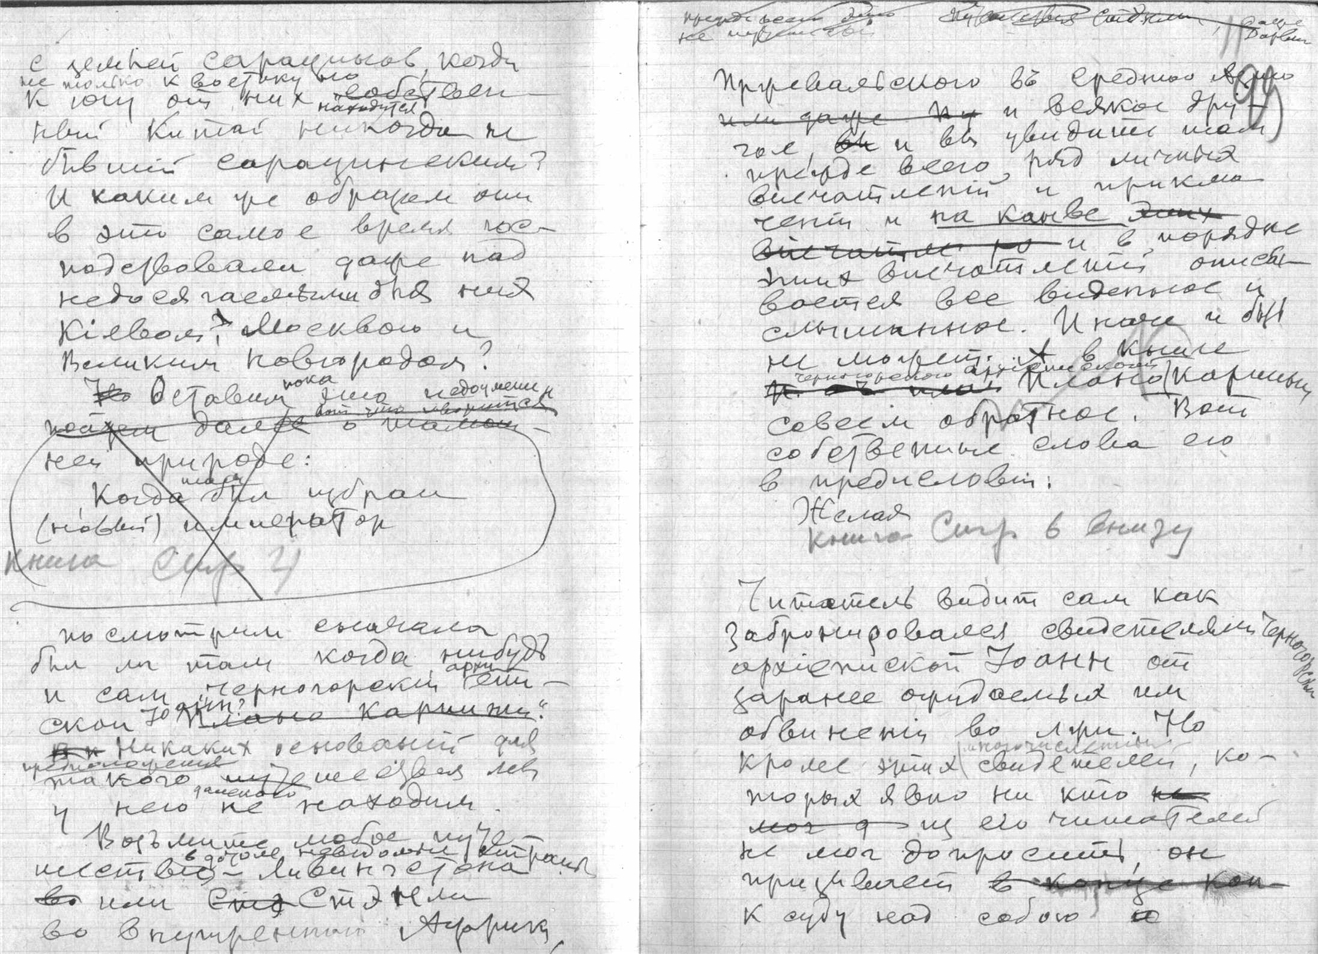 с землей сарацинов, когда
не только к востоку но
к югу от них собствен-
находится
ный Китай никогда не
бывшій сарацинским?
И каким же образом они
в это самое время гос-
подствовали даже над
недосягаемыми для них
Кіевом, Москвою и
Великим Новгородом?
Но Оставим пока это
пойдем далее о
ней природе:
Когда был избран
(новый) император
Книга Стр 21
посмотрим сначала
был ли там когда нибудь
и сам „Черногорскій архи епи-
скоп Іоанн?
Плано Карпини".
Никаких основаній для
предположения
такого далекого путешествія мы
у него не находим.
Возьмите любое путе-
шествіе в дотоле неведомыя страны
Ливингстона
или Стэнли
во внутреннюю Африку,
даже
Дарвин
99
Пржевальского въ Среднюю Азію
или даже и всякое дру-
гое, и вы увидите там
прежде всего, ряд личных
впечатленій и приклю-
чений и на канве этих
впечатлений и в порядке
этих впечатленій описы-
вается все виденное и
слышанное. Иначе и быть
не может. А в книге
черногорского архіепископа
Плано Карпини
совсем обратное. Вот
собственные слова его
в предисловіи:
Желая
книга Стр 6 внизу
Читатель видит сам как
забронировался свидетелями Черногорскій
архіепископ Іоанн от
заранее ожидаемых им
обвиненій во лжи. Но
кроме этих многочисленных свидетелей, ко-
торых явно ни кто не
мог из его читателей
не мог допросить, он
призывает в конце кон-
к суду над собою